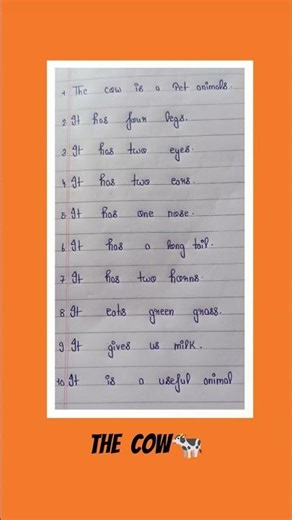 1 The cow is a Pet animals.
2 It has four legs.
3 It has two eyes.
4 It has two ears.
5 It has one nose.
6 It has a long tail.
7 It has two horns.
8 It eats green grass.
9 It gives us milk.
10 It is a useful animal
THE COW🐄